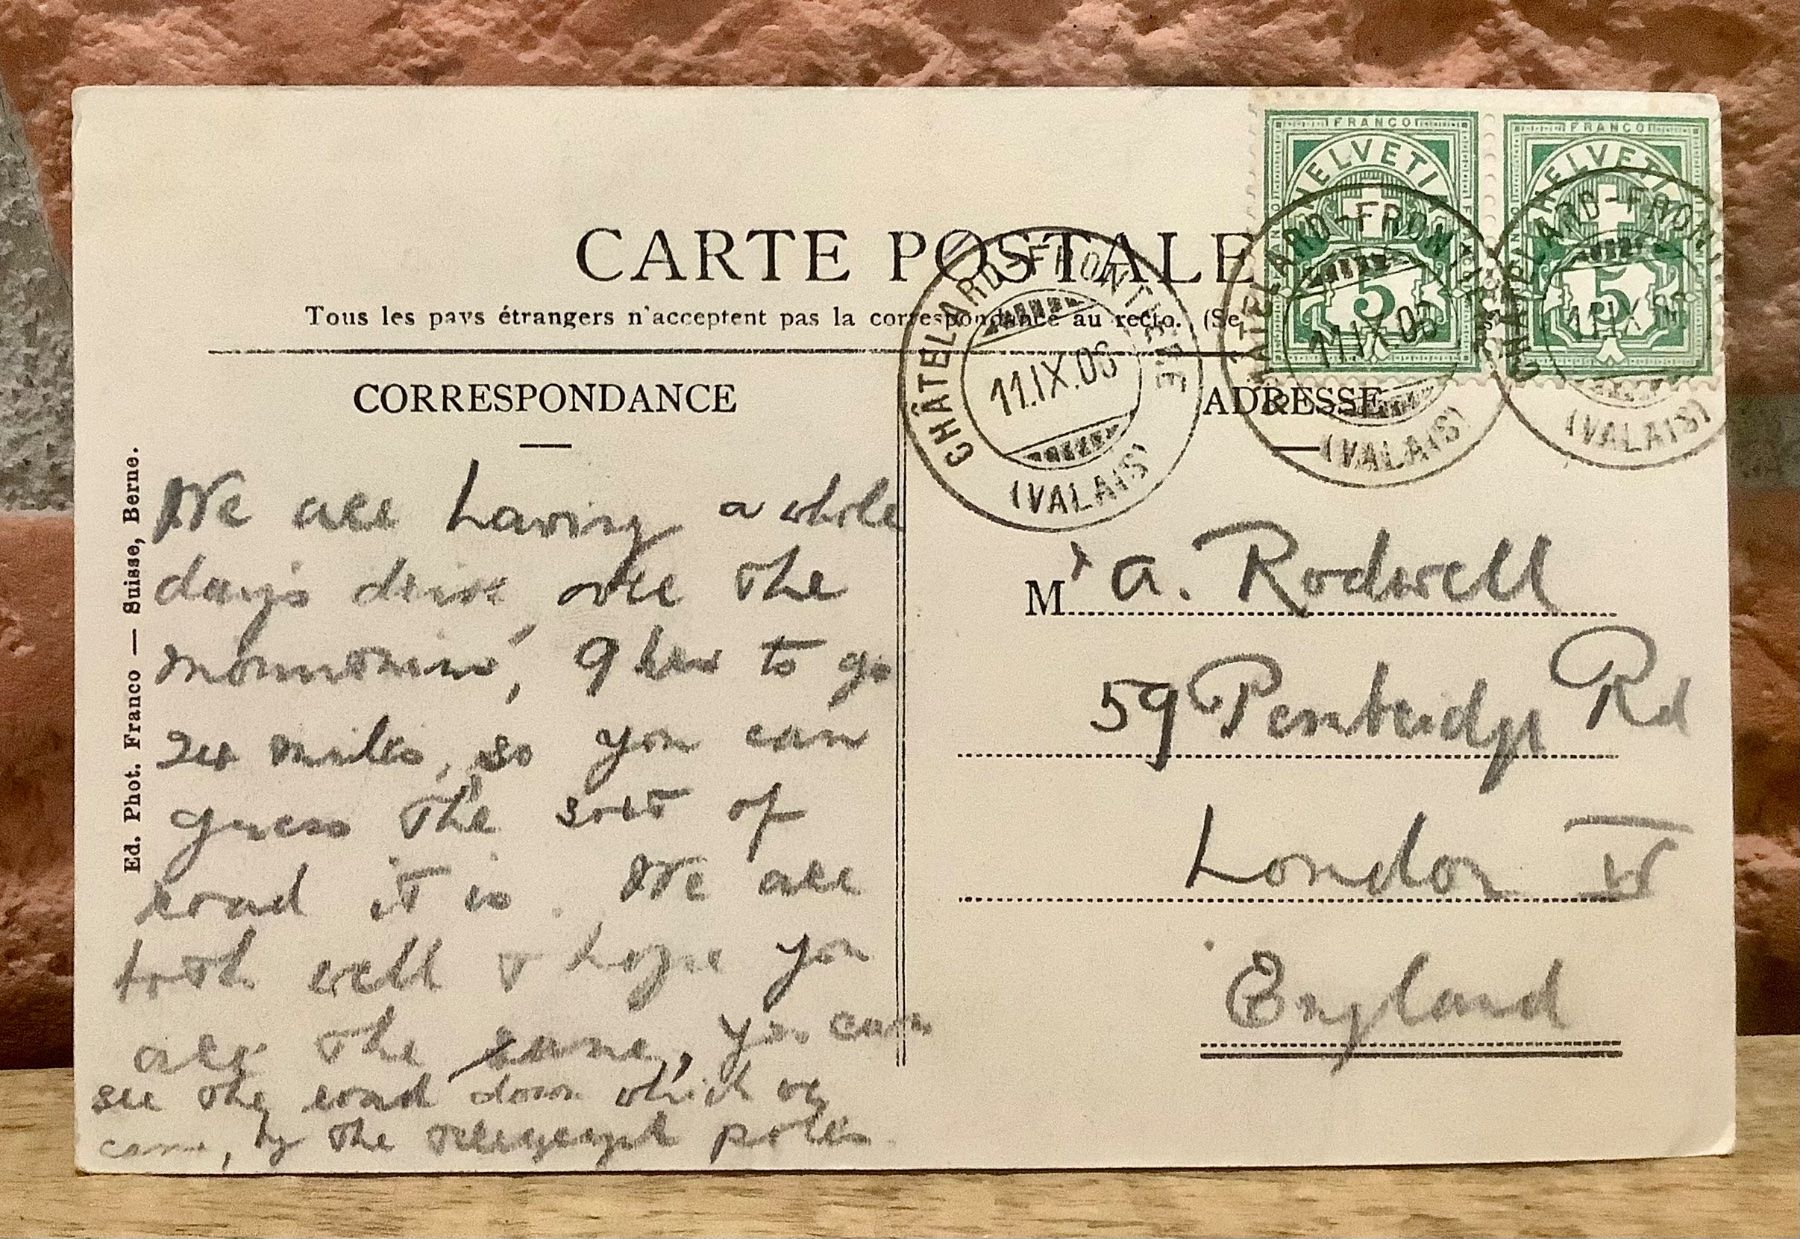 FRANCO FRANCO
HELVETIA HELVETIA
5 5
CARTE POSTALE
Tous les pays étrangers n'acceptent pas la correspondance au recto. (Se
CHÂTELARD-FRONTIÈRE
11.IX.06
(VALAIS)
CHÂTELARD-FRONTI
11.IX.06
(VALAIS)
CHÂTELARD-FRON
11.IX.06
(VALAIS)
CORRESPONDANCE
ADRESSE
Ed. Phot. Franco — Suisse, Berne.
We are having a whole
day's drive over the
mountains, 9 hrs to go
24 miles, so you can
guess the sort of
road it is. We are
both well & hope you
are the same, you can
see the road down which we
came, by the telegraph poles.
Mr A. Rodwell
59 Pembridge Rd
London W
England